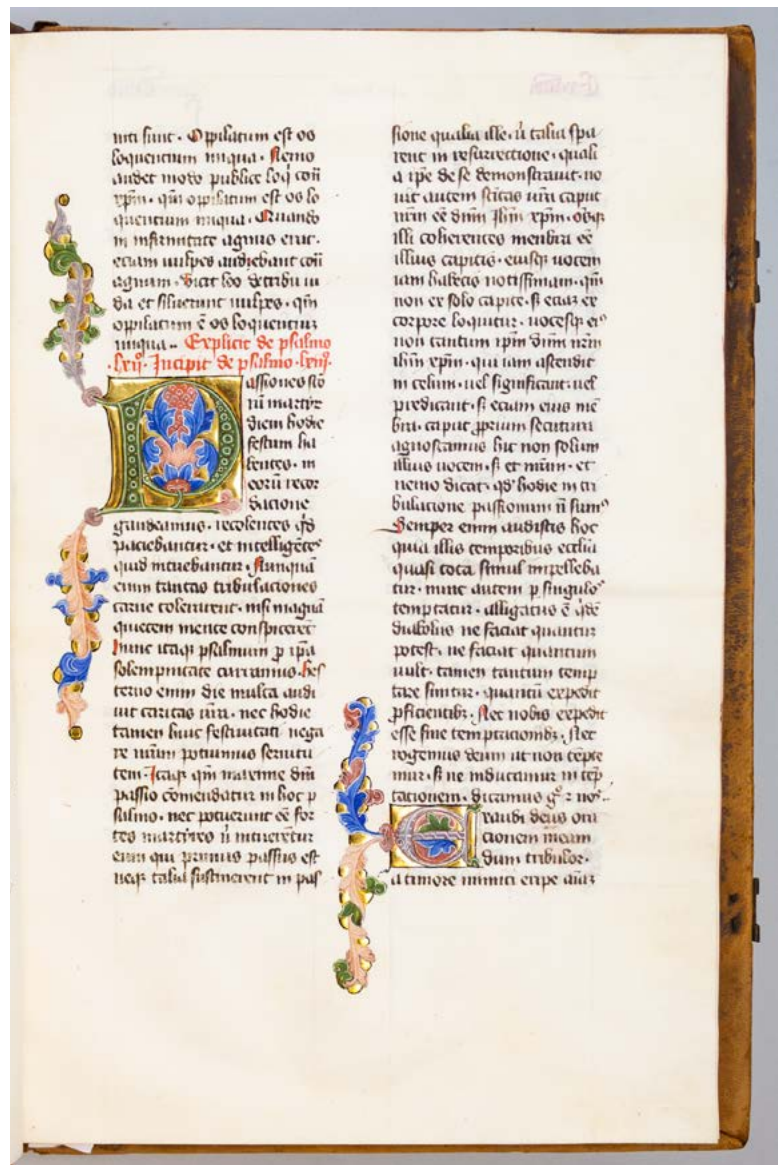 niti sunt · Oppilatum est os
loquencium iniqua · Nemo
audet modo publice loq̄ cōtᷓ
xp̄m · qm̄ oppilatum est os lo
quencium iniqua · Quando
in infirmitate agnus erat ·
eciam uulpes audebant cōtᷓ
agnum · Vicit leo de tribu iu
da et siluerunt uulpes · qm̄
oppilatum ē os loquenciuꝫ
iniqua ·· Explicit de psalmo
·lxij· Incipit de psalmo ·lxiij·
Passiones sc̄o
rū martyꝝ
diem hodie
festum ha
bentes · in
eorū recor
dacione
gaudeamus · recolentes qͥd
paciebantur · et intelligētes
quid intuebantur · Nunquā
enim tantas tribulaciones
carne tolerarent · nisi magnā
quietem mente conspicerēt
hunc itaqꝫ psalmum ꝑ ip̄a
solempnitate curramus · hes
terno enim die multa audi
uit caritas ur̄a · nec hodie
tamen huic festiuitati nega
re nr̄um potuimus seruitu
tem · Itaqꝫ qm̄ maxime dn̄i
passio cōmendatur in hoc p
salmo · nec potuerunt eē for
tes martyres ñ intuerētur
eum qui primus passus est
neqꝫ talia sustinerent in pas
sione qualia ille · ñ talia spa
rent in resurrectione · quali
a ip̄e de se demonstrauit · no
uit autem sc̄itas ur̄a caput
nr̄m eē dn̄m ih̄m xp̄m · om̄sqꝫ
illi coherentes membra eē
illius capitis · eiusqꝫ uocem
iam habetis notissimam · qm̄
non ex solo capite · sꝫ eciaꝫ ex
corpore loquitur · uocesqꝫ eiꝰ
non tantum ip̄m dn̄m nr̄m
ih̄m xp̄m · qui iam ascendit
in celum · uel significant · uel
predicant · sꝫ eciam eius mē
bra · caput ꝓprium secutura
agnoscamus hic non solum
illius uocem · sꝫ et nr̄am · et
nemo dicat · qd̓ hodie in tri
bulacione passionum ñ sumꝰ
Semper enim audistis hoc
quia illis temporibus eccl̄ia
quasi tota simul impelleba
tur · nunc autem ꝑ singulos
temptatur · alligatus ē qͥdē
diabolus ne faciat quantum
potest · ne faciat quantum
uult · tamen tantum temp
tare sinitur · quantū expedit
ꝓficientibꝫ · Nec nobis expedit
esse sine temptacionibꝫ · Nec
rogemus deum ut non tēpte
mur · sꝫ ne inducamur in tēp
tacionem · dicamus gͦ · ⁊ nos ··
Exaudi deus ora
cionem meam
dum tribulor ·
a timore inimici eripe aīaꝫ